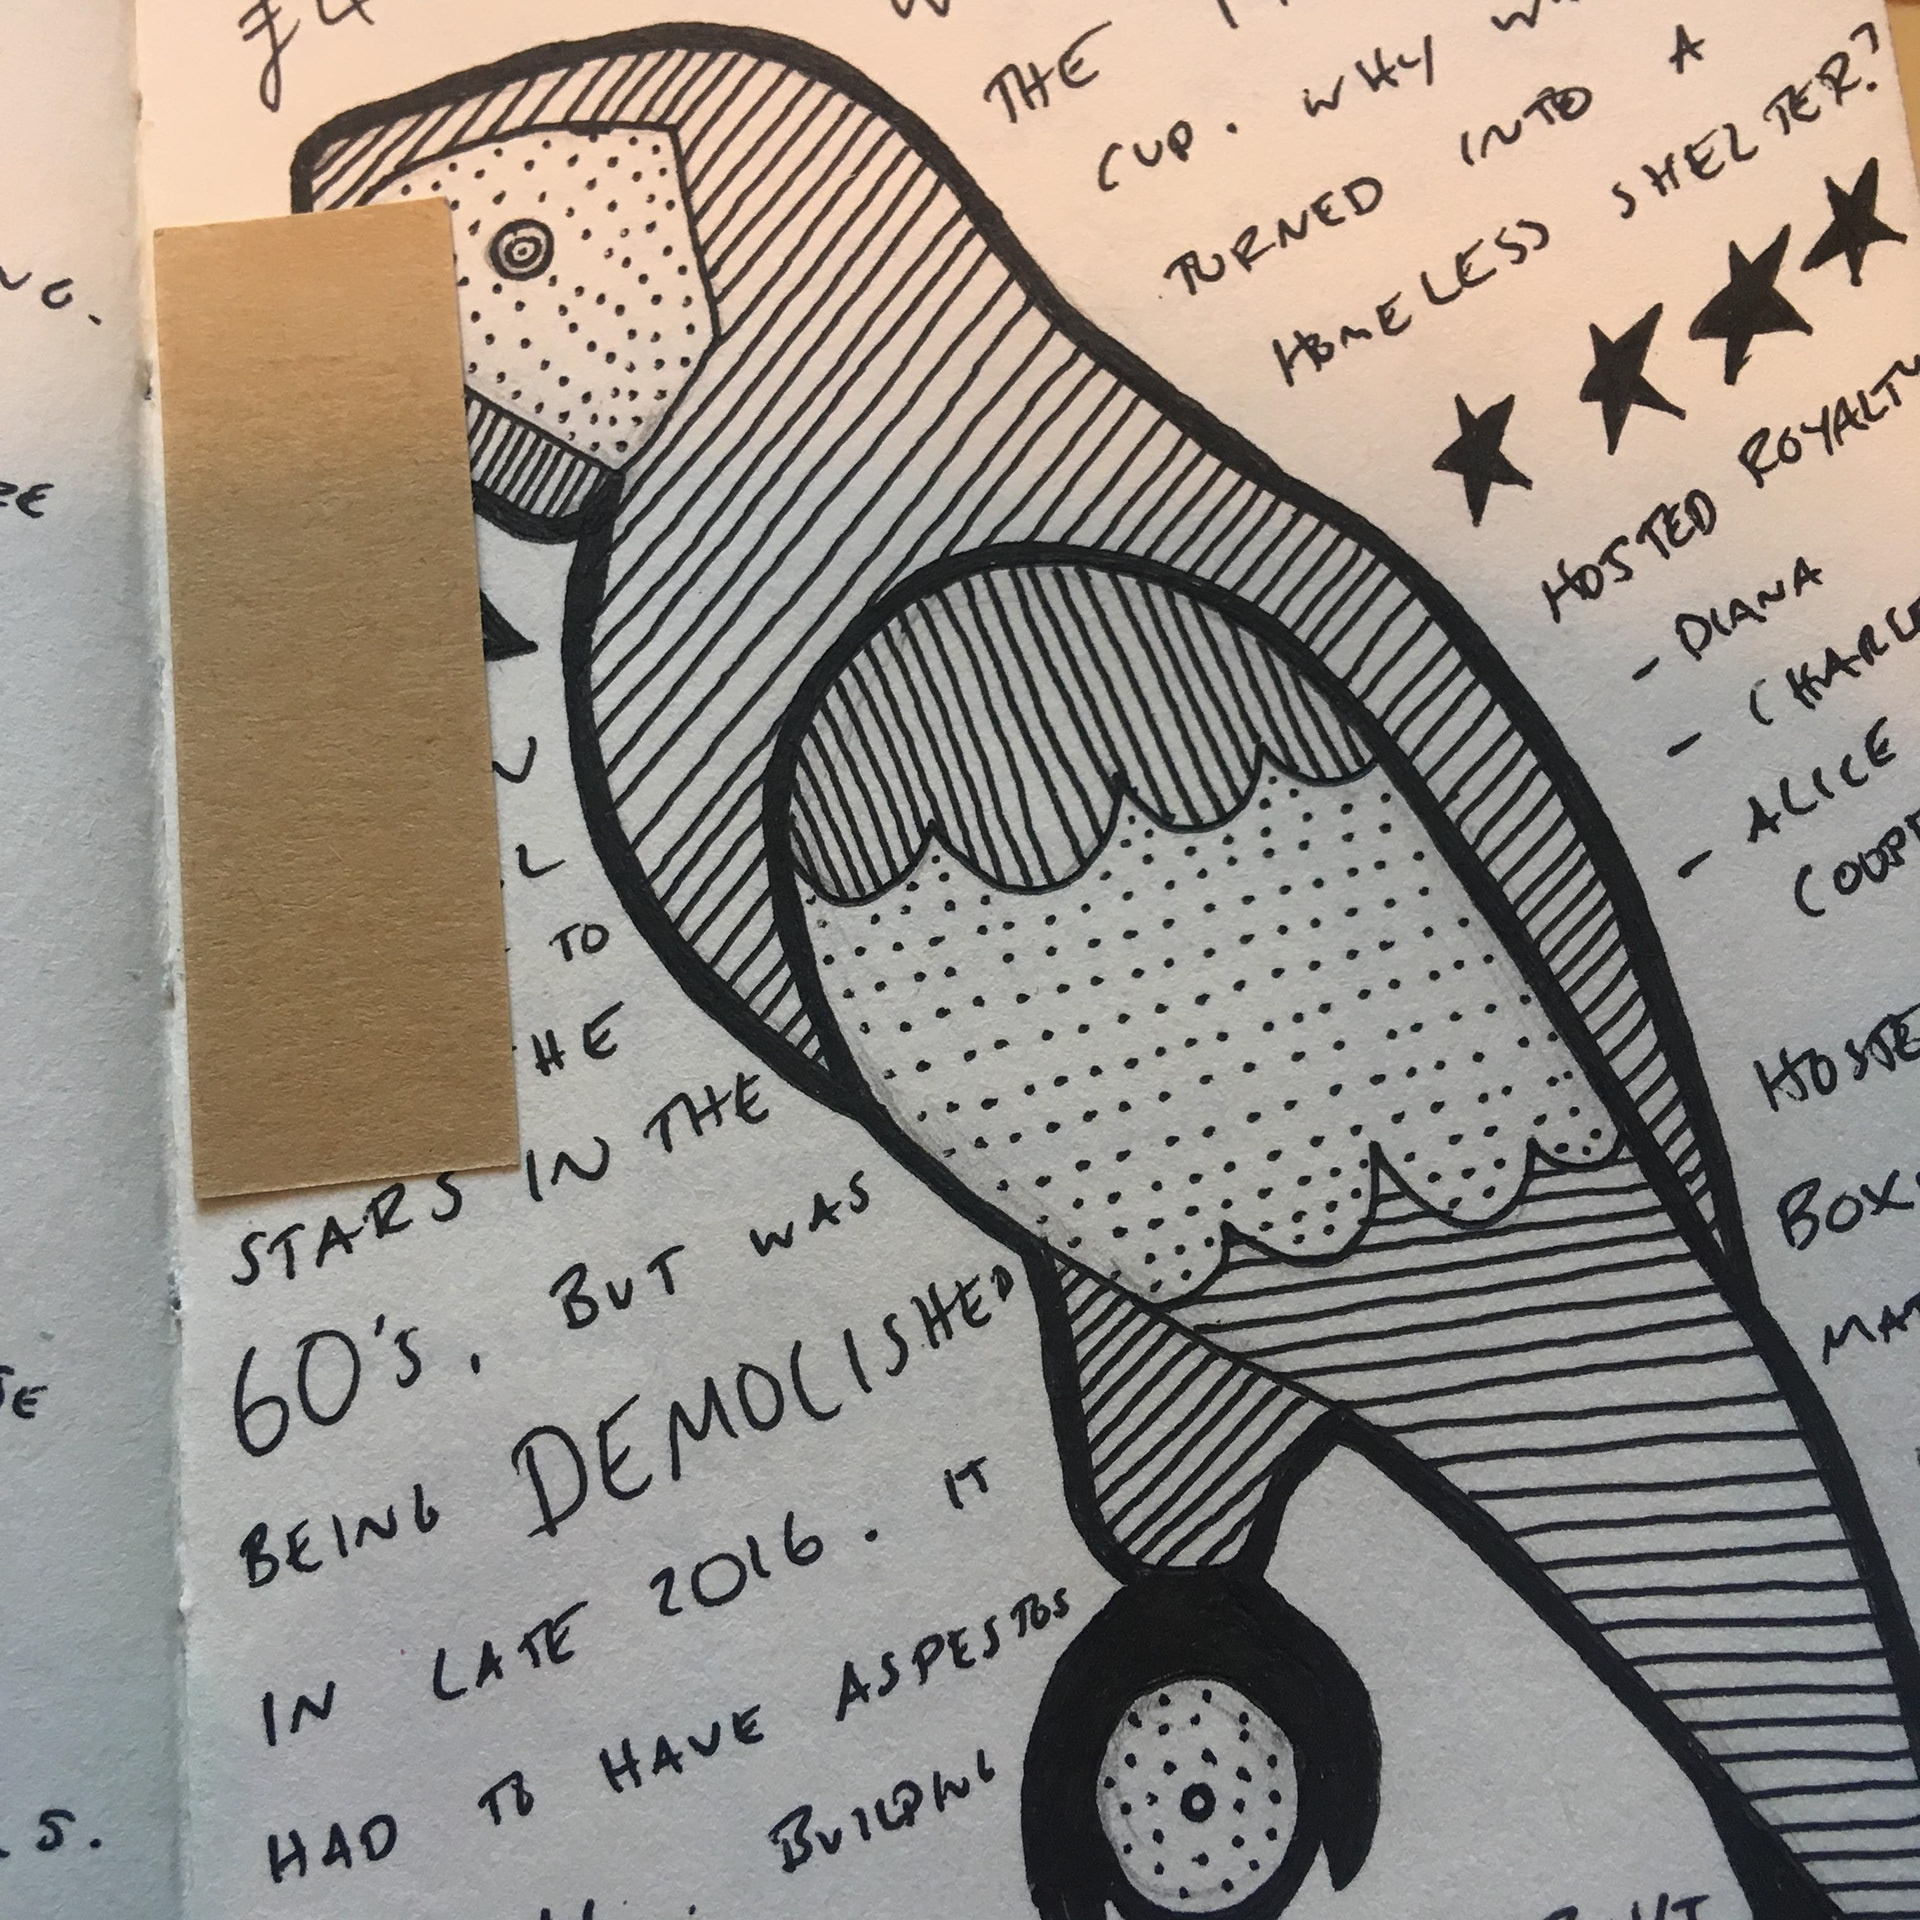 £4
THE
CUP. WHY
TURNED INTO A
HOMELESS SHELTER?
HOSTED ROYALTY
- DIANA
- CHARLE
- ALICE
COOPE
HOSTE
BOX
MAT
TO
HE
STARS IN THE
60's. BUT WAS
BEING DEMOLISHED
IN LATE 2016. IT
HAD TO HAVE ASPESTOS
BUILDING